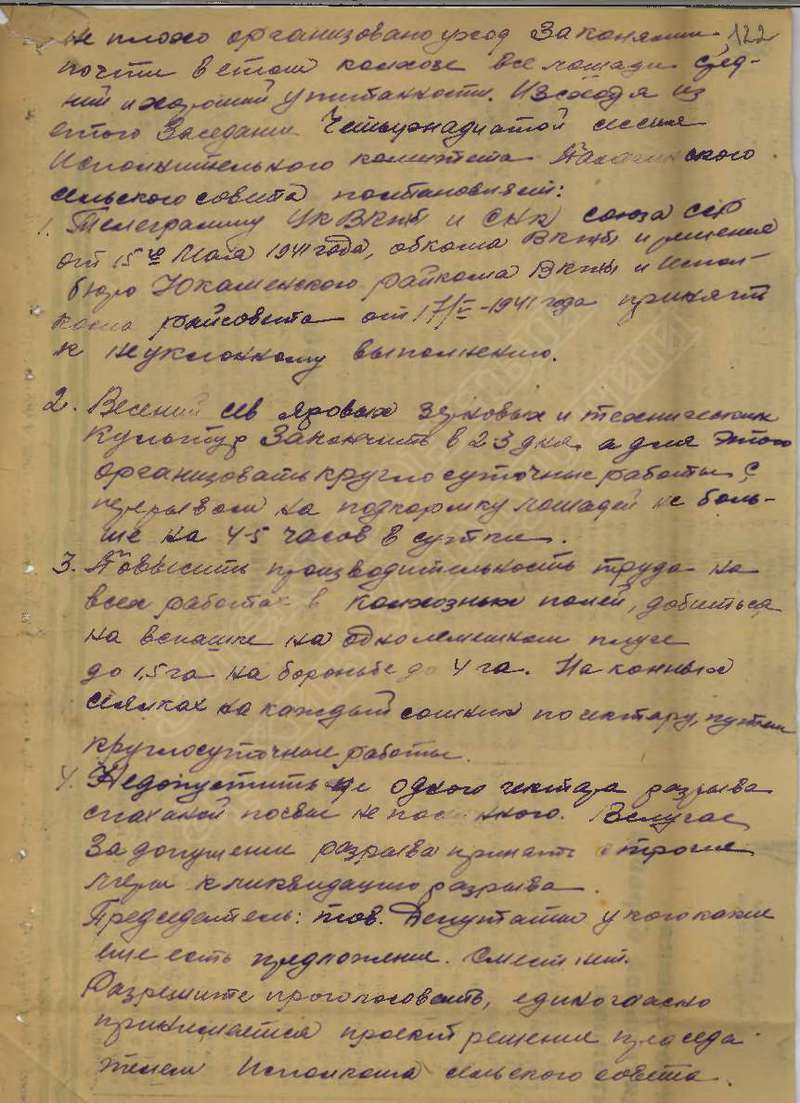 122
не плохо организовано уход за конями
почти в етом колхозе все лошади сред-
ний и хороший упитанности. Исходя из
етого заседании Четырнадцатой сессия
Исполнительного комитета
сельского совита постановляит:
1. Телеграмму ЦК ВКПб и СНК союза ССР
от 15 го Мая 1941 года, обкома ВКПб и решение
бюро Юкаменского райкома ВКПб и Испол-
кома райсовита от 17/V-1941 года принять
к неуклонному выполнению.
2. Весений сев яровых зерновых и технических
культур закончить в 23 дня, а для этого
организовать круглосуточные работы с
перерывом на подкормку лошадей не боль-
ше на 4-5 часов в сутки.
3. Повысить производительность труда на
всех работах в колхозных полей, добиться
на вспашке на однолемешном плуге
до 1,5 га на бороньбе до 4 га. На конных
сеялках на каждый сошник по иктару, путем
круглосуточные работы.
4. Недопустить не одного гектара разрыва
спаханой посвы не посеянного. Вслучае
за допущении разрыва принять строгие
меры к ликвидацию разрыва.
Председатель: тов. Депутаты у кого какие
еще есть предложение. Смест нит.
Разрешите проголосовать, единогласно
принимается проект решение председа
телем Исполкома сельского совета.